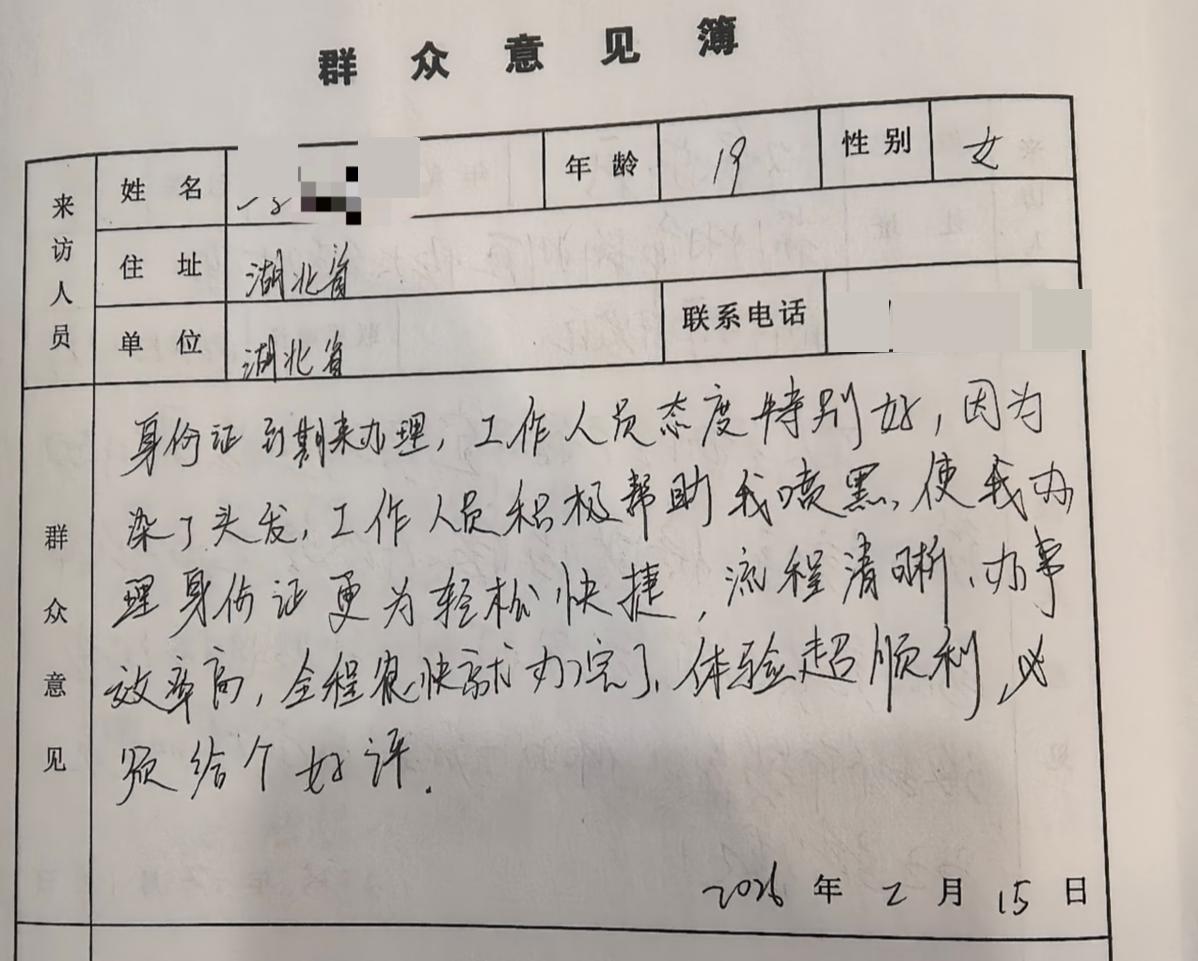 群众意见簿
来访人员 姓名 年龄 19 性别 女
住址 湖北省
单位 湖北省 联系电话
群众意见
身份证到期来办理，工作人员态度特别好，因为
染了头发，工作人员积极帮助我喷黑，使我办
理身份证更为轻松快捷，流程清晰、办事
效率高，全程很快就办完了，体验超顺利，必
须给个好评．
2026年2月15日